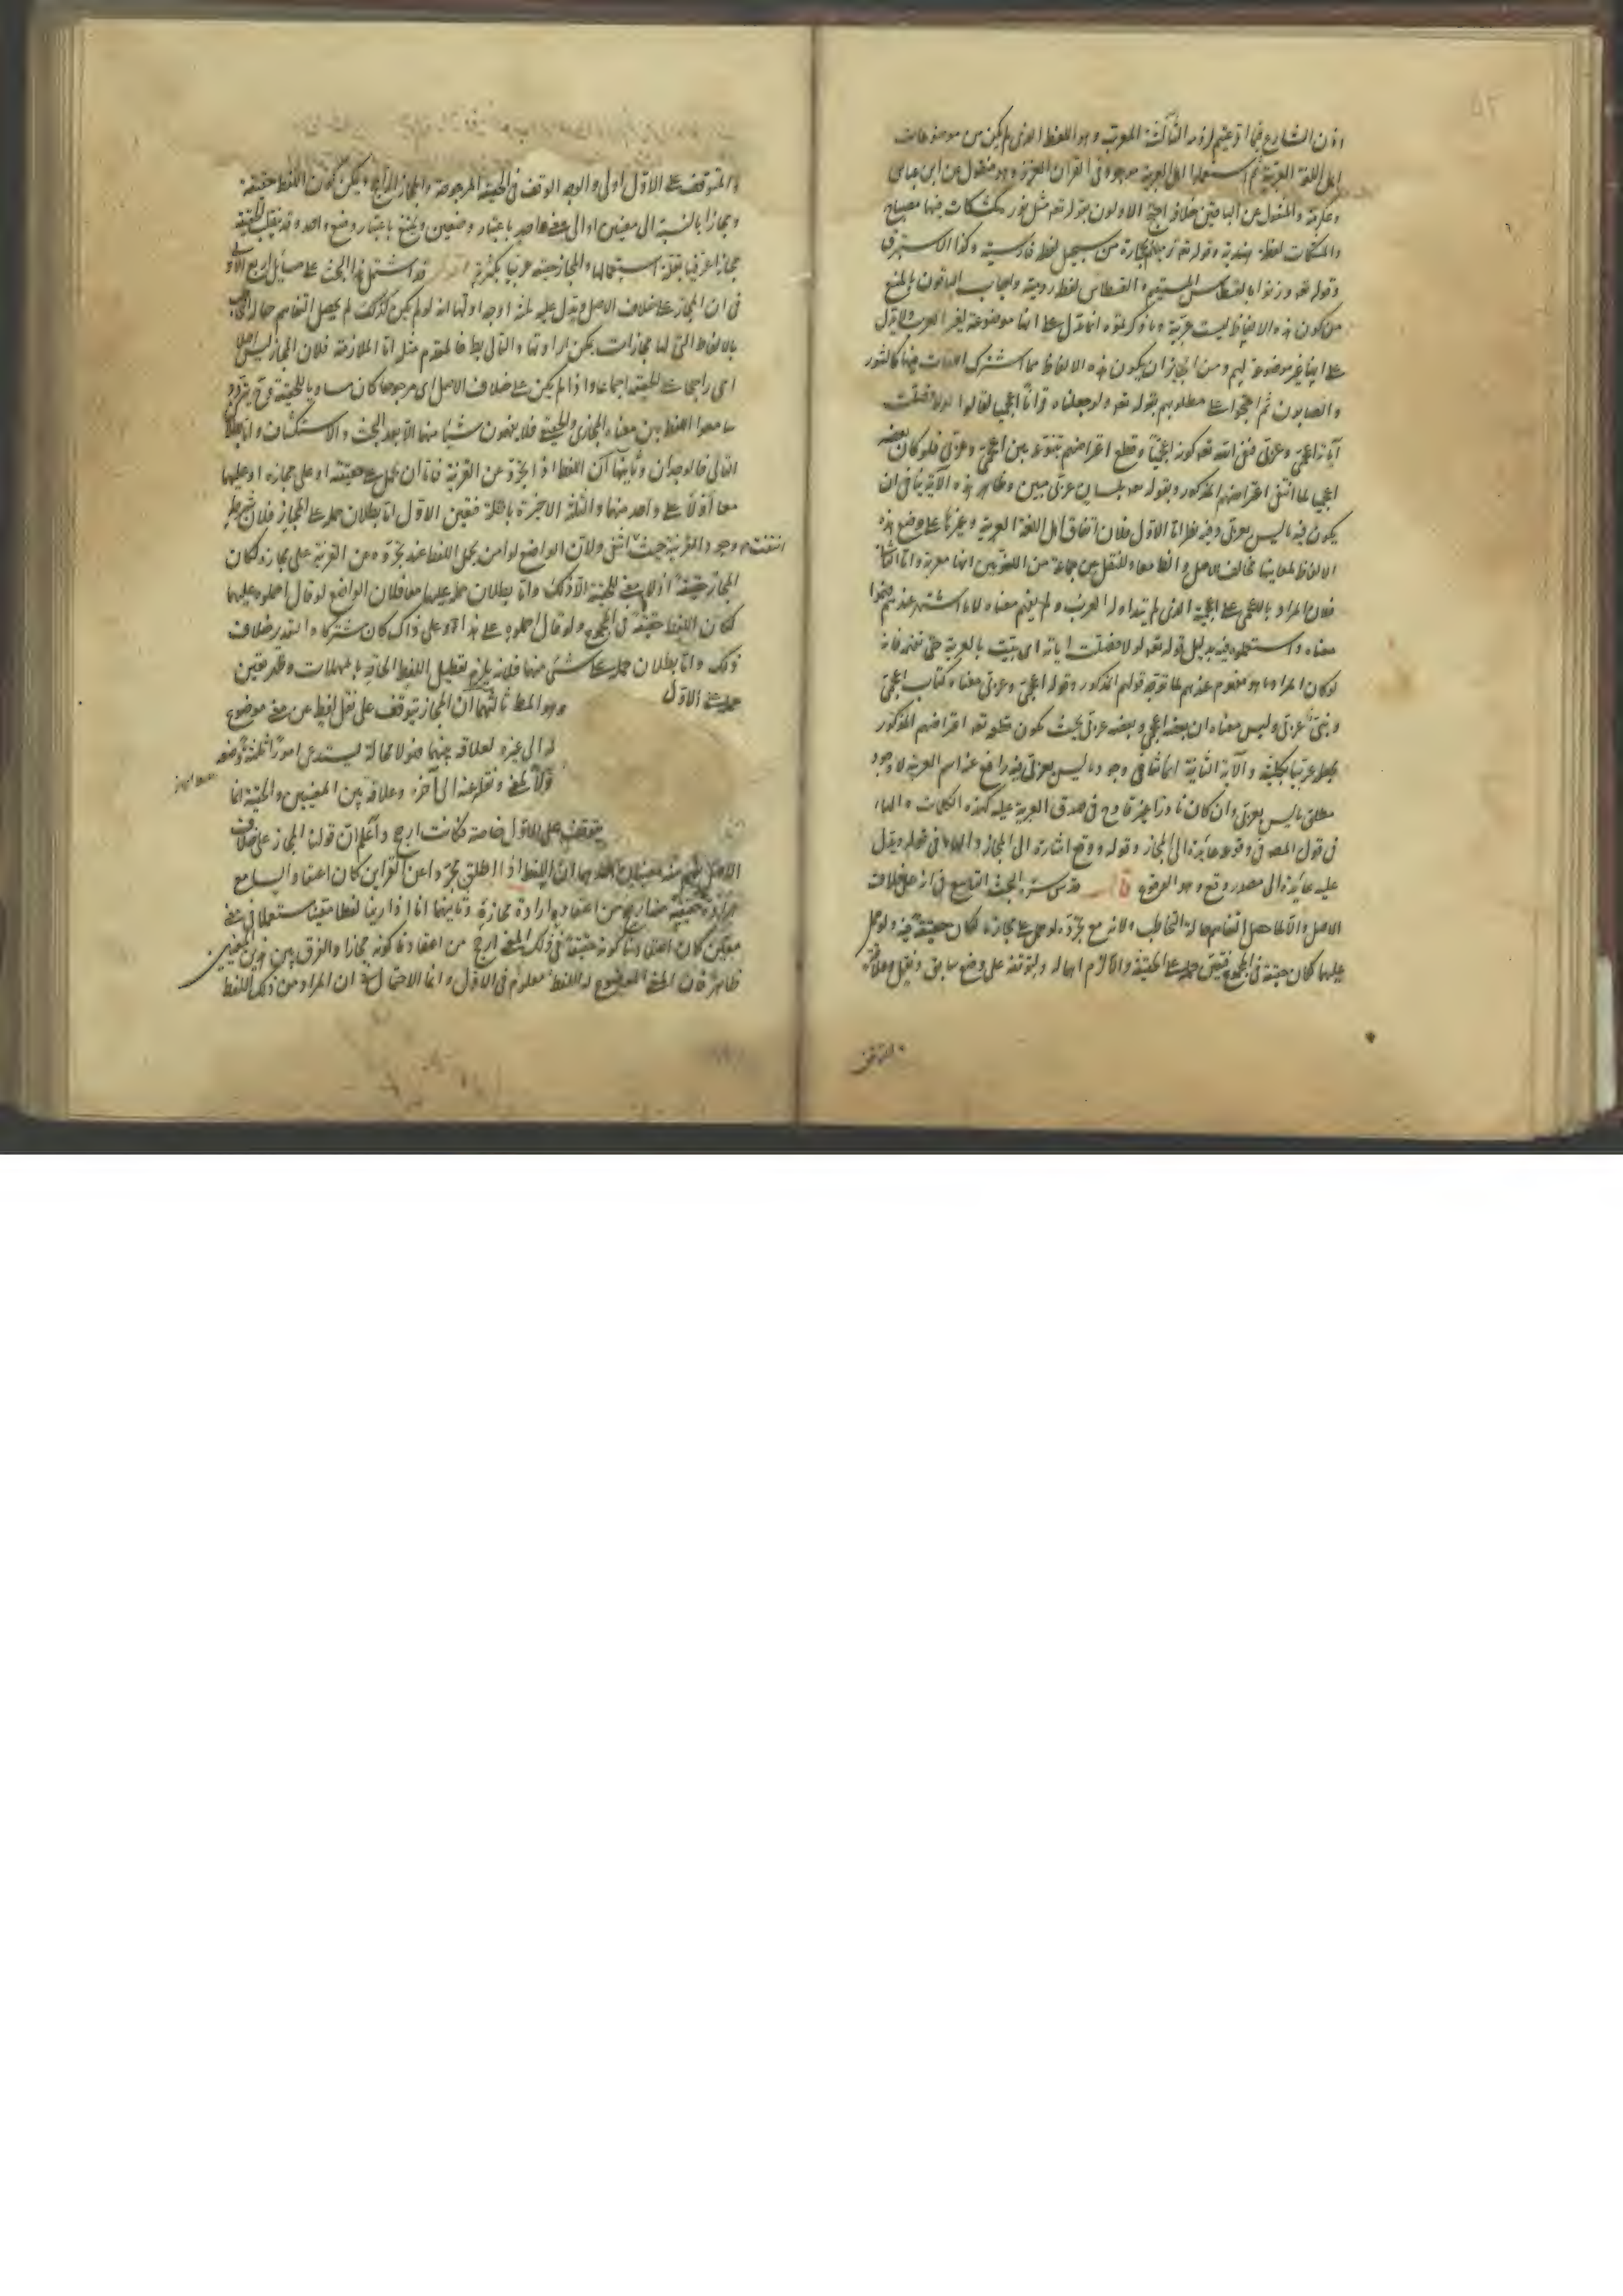 اذن الشارع فيها او غيرهم لزوم الثالثة المعرب وهو اللفظ الذى لم يكن من موضوعات
اهل اللغة العربية ثم استعملها اهل العربية موجود فى القران العزيز وهو منقول عن ابن عباس
وعكرمة والمنقول عن الباقين خلافه احتج الاولون بقوله تعه مثل نوره كمشكات فيها مصباح
والمشكات لفظة هندية وقوله تعه ترميهم بحجارة من سجيل لفظ فارسية وكذا الاستبرق
وقوله تعه وزنوا بالقسطاس المستقيم والقسطاس لفظة رومية واجاب الباقون بالمنع
من كون هذه الالفاظ ليست عربية وما ذكرتموه انما يدل على انها موضوعة لغير العرب ولا يدل
على انها غير موضوعة لهم ومن الجايز ان يكون هذه الالفاظ مما اشترك اللغات فيها كالتنور
والصابون ثم احتجوا على مطلوبهم بقوله تعه ولو جعلناه قرآنا اعجميا لقالوا لولا فصلت
آياته اعجمى وعربى فنفى الله تعه كونه اعجميا وقطع اعتراضهم بتنوعه بين اعجمى وعربى فلو كان بعضه
اعجميا لما انتفى اعتراضهم المذكور وبقوله تعه بلسان عربى مبين وظاهر هذه الآية ينافى ان
يكون فيه ما ليس بعربى وفيه نظر اما الاول فلان اتفاق اهل اللغة العربية وغيرها على وضع هذه
الالفاظ لمعانيها مخالف للاصل وانظامها وللنقل من جماعة من اللغويين انها معربة واما الثانى
فلان المراد بالاعجمى على اعجمية الذى لم يتداوله العرب ولم يفهم معناه لا ما اشتهر عندهم وفهموا
معناه واستعملوه فيه بدليل قوله تعه لولا فصلت اياته اى بينت بالعربية حتى نفهمه فانه
لو كان المراد ما هو مفهوم عندهم لما توجه قولهم المذكور وقوله اعجمى وعربى معناه كتاب اعجمى
ونبى عربى وليس معناه ان بعضه اعجمى وبعضه عربى بحيث يكون قطعه تعه اعتراضهم المذكور
بجعله عربيا بكليته والآية الثانية انما تنافى وجود ما ليس بعربى فيه رافع عنه اسم العربية لا وجود
مطلق ما ليس بعربى وان كان نادرا غير قادح فى صدق العربية عليه كهذه الكلمات والهاء
فى قول المصه فى وقوعه عائدة الى المجاز وقوله ووقع اشارة الى المجاز والهاء فى قوله ويدل
عليه عائدة الى مصدر وقع وهو الوقوع قال قدس سره البحث التاسع فى انه على خلاف
الاصل والا لما حصل التفاهم حالة التخاطب ولانه مع تجرده لو حمل على مجازه لكان حقيقة فيه ولو حمل
عليهما كان حقيقة فى المجموع فتعين حمله على الحقيقة والا لزم اهماله ولتوقفه على وضع سابق ونقل وعلاقة
والتوقف
والمتوقف على الاول اولى والوجه الوقف فى الحقيقة المرجوحة والمجاز الراجح ويمكن كون اللفظ حقيقة
ومجازا بالنسبة الى معنيين او الى معنى واحد باعتبار وضعين ويمتنع باعتبار وضع واحد وقد ينقلب الحقيقة
مجازا عرفيا بقلة استعمالها والمجاز حقيقة عرفيا بكثرته قد اشتمل هذا البحث على مسائل اربع الاولى
فى ان المجاز على خلاف الاصل ويدل عليه ثلثة اوجه اولها انه لو لم يكن كذلك لم يحصل التفاهم حالة التخاطب
بالالفاظ التى لها مجازات يمكن ارادتها والتالى بط فالمقدم مثله اما الملازمة فلان المجاز ليس اصلا
اى راجحا على الحقيقة اجماعا واذا لم يكن على خلاف الاصل اى مرجوحا كان مساويا للحقيقة فى ح يتردد
سامعوا اللفظ بين معناه المجازى والحقيقى فلا يفهمون شيئا منها الا بعد البحث والاستكشاف واما بطلان
التالى فبالوجدان وثانيها ان اللفظ اذا تجرد عن القرينة فاما ان يحمل على حقيقته او على مجازه او عليهما
معا او لا على واحد منهما والثلثة الاخيرة باطلة فتعين الاول اما بطلان حمله على المجاز فلان شرطه
انتفت وجود القرينة حيث انتفى ولان الواضع لو امر بحمل اللفظ عند تجرده عن القرينة على مجازه لكان
المجاز حقيقة اذ لا معنى للحقيقة الا ذلك واما بطلان حمله عليهما معا فلان الواضع لو قال احملوه عليهما
لكان اللفظ حقيقة فى المجموع ولو قال احملوه على هذا او على ذاك كان مشتركا والتقدير خلاف
ذلك واما بطلان حمله على شئ منها فلانه يلزم تعطيل اللفظ والحاقه بالمهملات وظهر تعين
حمله على الاول وهو المط ثالثها ان المجاز يتوقف على نقل لفظ عن معنى موضوع
له الى غيره لعلاقة بينهما فهو لا محالة يستدعى امورا ثلثة وضعه
اولا لمعنى ونقله عنه الى آخر وعلاقة بين المعنيين والحقيقة انما
يتوقف على الاول خاصة فكانت ارجح واعلم ان قولنا المجاز على خلاف
الاصل يفهم منه معنيان احدهما ان اللفظ اذا اطلق مجردا عن القراين كان اعتقاد السامع
ارادة حقيقته ارجح من اعتقاده ارادة مجازه وثانيهما انا اذا راينا لفظا معينا مستعملا فى معنى
معين كان اعتقادنا كونه حقيقة فى ذلك المعنى ارجح من اعتقادنا كونه مجازا والفرق بين هذين المعنيين
ظاهر فان المعنى الموضوع له اللفظ معلوم فى الاول وانما الاحتمال فى ان المراد من ذلك اللفظ